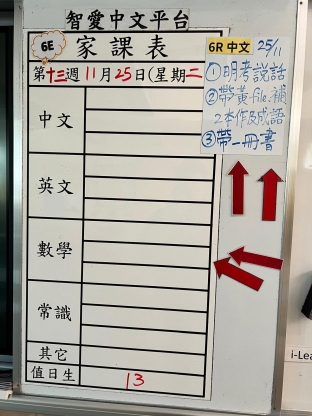 智愛中文平台
6E
家課表
第十三週 11月25日(星期二
6R 中文 25/11
①明考説話
②帶黃file,補
2本作及成語
③帶一冊書
中文
英文
數學
常識
其它
值日生 13
i-Lea